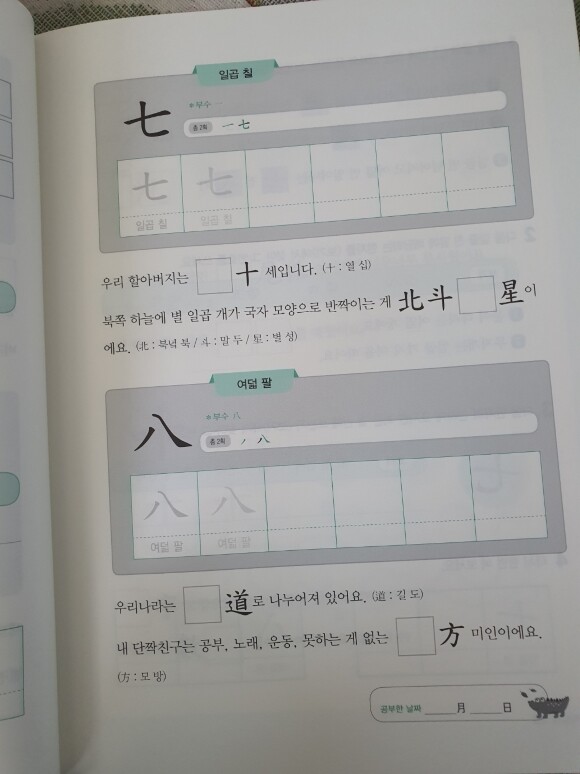 일곱 칠
七
*부수 一
총2획 一 七
七 七
일곱 칠 일곱 칠
우리 할아버지는 □十 세입니다. (十 : 열 십)
북쪽 하늘에 별 일곱 개가 국자 모양으로 반짝이는 게 北斗□星이
에요. (北 : 북녘 북 / 斗 : 말 두 / 星 : 별 성)
여덟 팔
八
*부수 八
총2획 ノ 八
八 八
여덟 팔 여덟 팔
우리나라는 □道로 나누어져 있어요. (道 : 길 도)
내 단짝친구는 공부, 노래, 운동, 못하는 게 없는 □方 미인이에요.
(方 : 모 방)
공부한 날짜 ____月 ____日